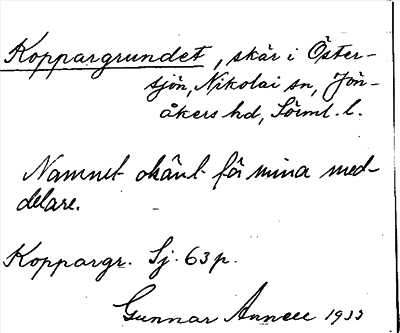 Koppargrundet, skär i Öster-
sjön, Nikolai sn, Jön-
åkers hd, Sörml. l.
Namnet okänt för mina med-
delare.
Koppargr. Sj. 63 p.
Gunnar 1933